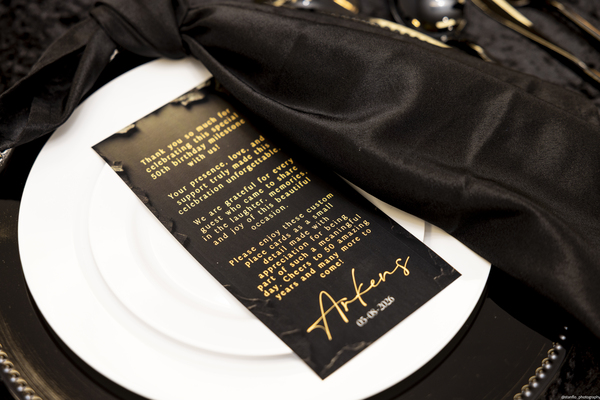 Thank you so much for
celebrating this special
50th birthday milestone
with us!
Your presence, love, and
support truly made this
celebration unforgettable.
We are grateful for every
guest who came to share
in the laughter, memories,
and joy of this beautiful
occasion.
Please enjoy these custom
place cards as a small
details made with
appreciation for being
part of such a meaningful
day. Cheers to 50 amazing
years and many more to
come!
Arkens
05-08-2026